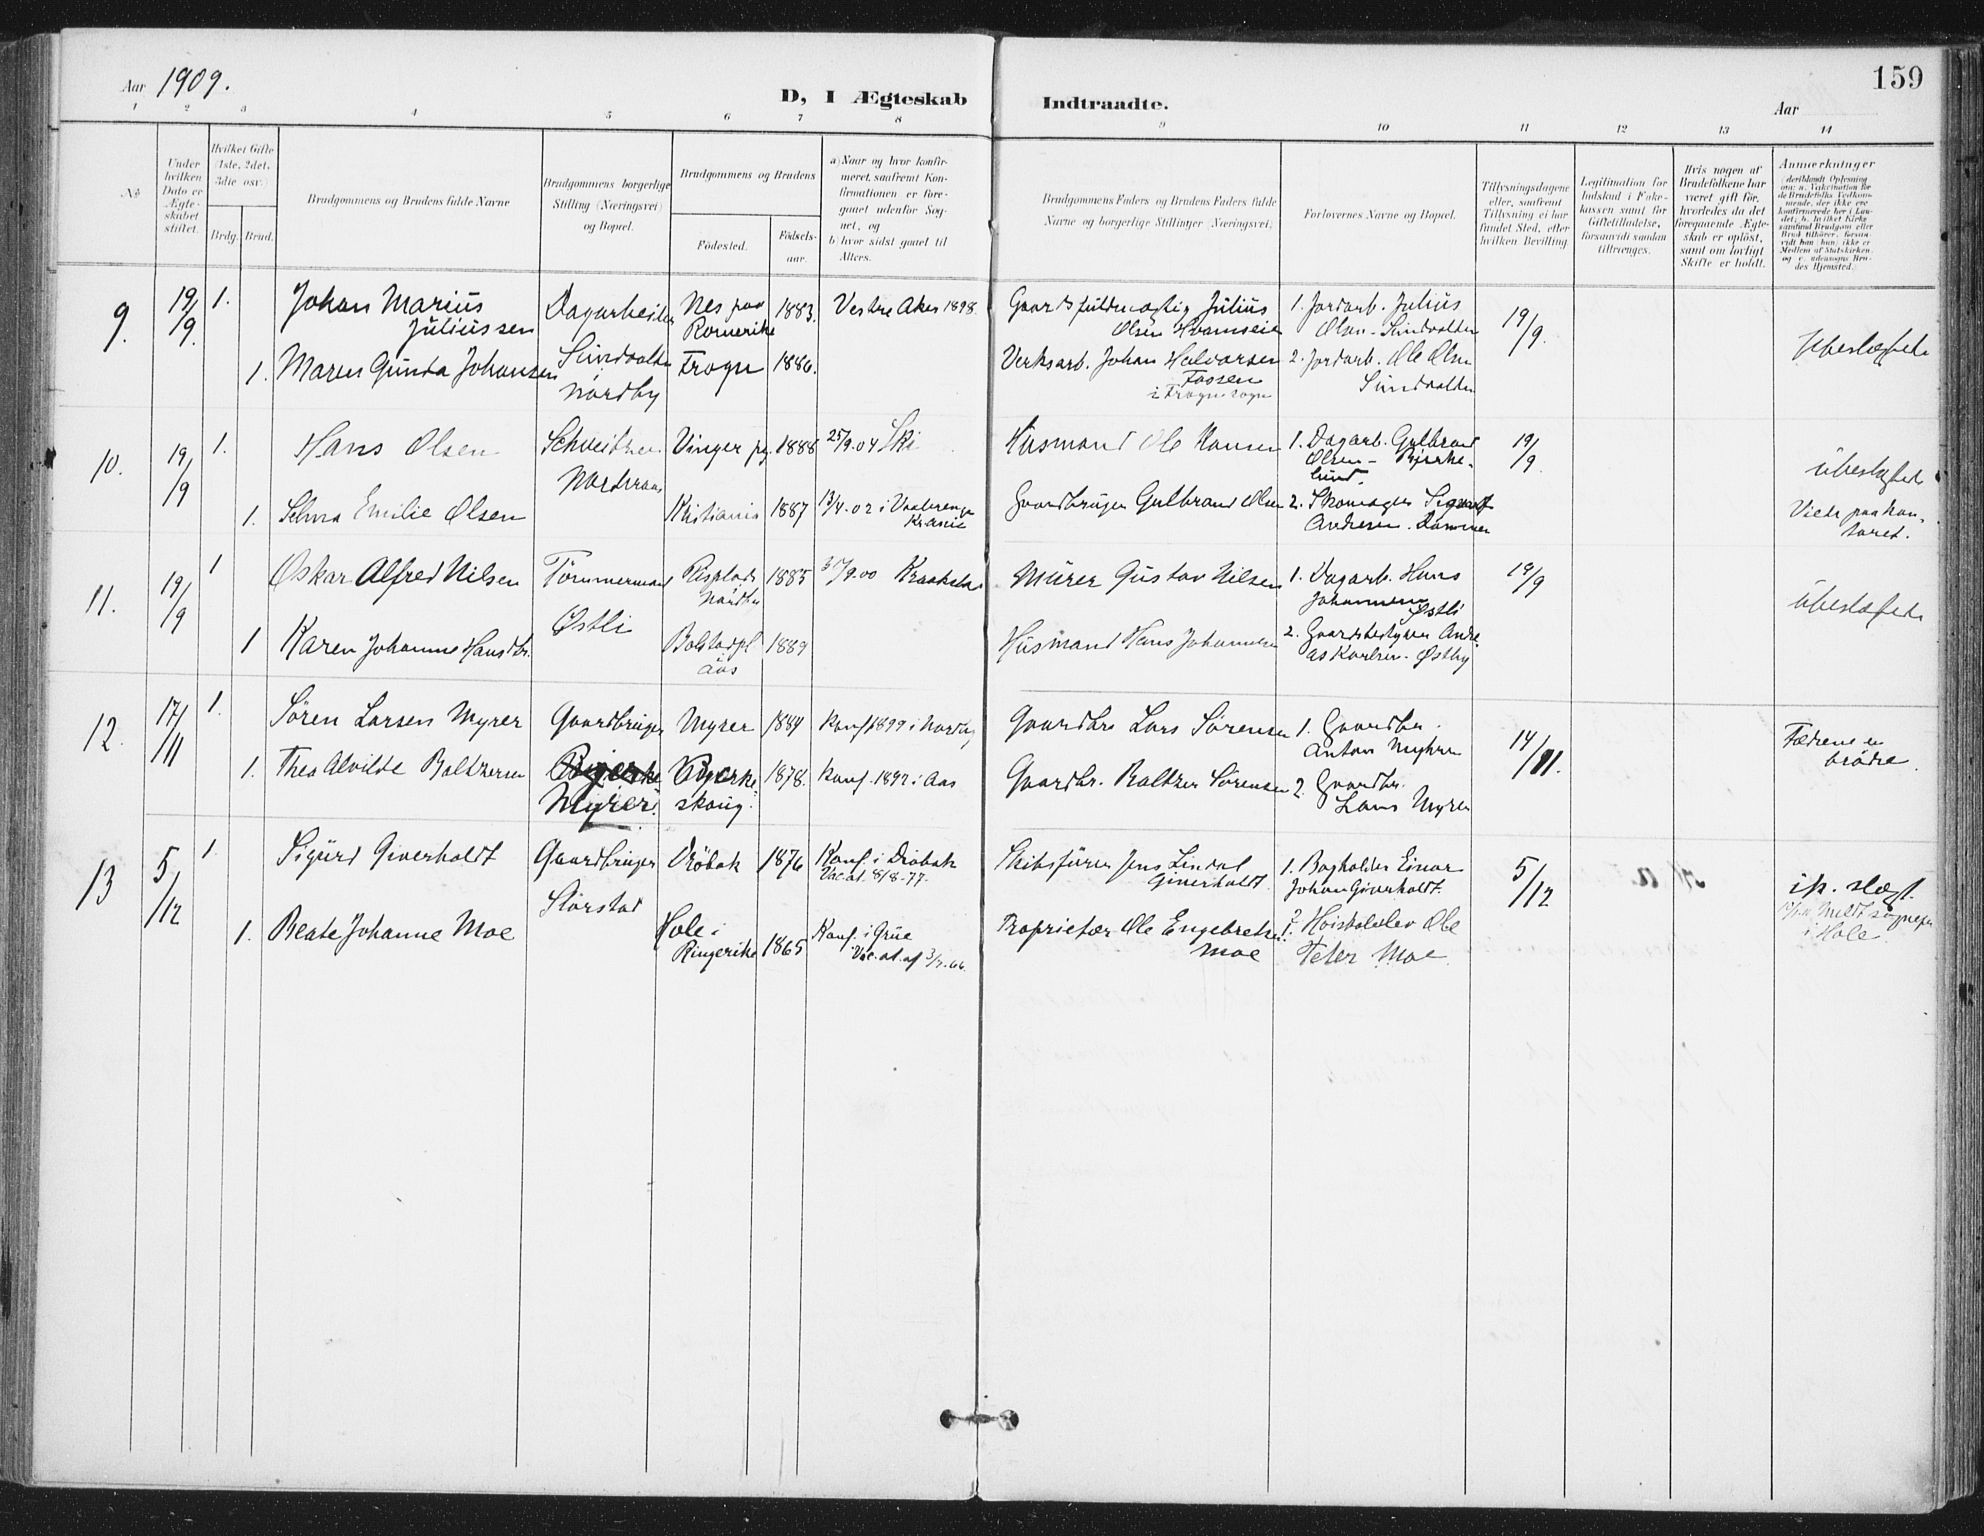 Aar 1909.
D, I Ægteskab Indtraadte.
Aar
159
1 2 3 4 5 6 7 8 9 10 11 12 13 14
No
Under hvilken Dato er Ægteskabet stiftet.
Hvilket Gifte (1ste, 2det, 3die osv.)
Brdg. Brud.
Brudgommens og Brudens fulde Navne
Brudgommens borgerlige Stilling (Næringsvei) og Bopæl.
Brudgommens og Brudens
Födested. Födsels-aar.
a) Naar og hvor konfirmeret, saafremt Konfirmationen er foregaaet udenfor Sognet, og
b) hvor sidst gaaet til Alters.
Brudgommens Faders og Brudens Faders fulde Navne og borgerlige Stillinger (Næringsvei)
Forlovernes Navne og Bopæl.
Tillysningsdagene eller, saafremt Tillysning ei har fundet Sted, efter hvilken Bevilling
Legitimation for Indskud i Enkekassen samt for Giftetilladelse, forsaavidt saadan tiltrænges.
Hvis nogen af Brudefolkene har været gift för, hvorledes da det foregaaende Ægteskab er oplöst, samt om lovligt Skifte er holdt.
Anmerkninger
9. 19/9. 1. Johan Marius Juliussen Dagarbeider Nes paa Romerike 1883. Vestre Aker 1898. Gaardsfuldmægtig Julius Olsen 1. Jordarb. Julius Olsen - Sundvolten 19/9. Ubeslægtede
1. Maren Gunda Johansen Sundvolten Nordby Frogn 1886. Verksarb. Johan Halvorsen Fossen i Frogn sogn 2. Jordarb. Ole Olsen Sundvolten
10. 19/9 1. Hans Olsen Schveitzer Vinger pg. 1888 25/9.04 Ski Husmand Ole Hansen 1. Dagarb. Gulbrand Olsen - Bjerkelund. 19/9. Ubeslægtede
1. Selma Emilie Olsen Nordraas Kristiania 1887 13/4.02 i Vaalerengen Krania Gaardbruger Gulbrand Olsen 2. Skomager Andersen. Viede paa kontoret.
11. 19/9 1 Oskar Alfred Nilsen Tömmermand Nordby 1885 30/9.00 Kraakstad Murer Gustav Nilsen 1. Dagarb. Hans Johannesen Østli 19/9 Ubeslægtede
1 Karen Johanne Hansdtr. Østli Bolstadpl Aas 1889 Husmand Hans Johannesen 2. Gaardsbestyrer Andreas Karlsen - Østby
12. 17/11 1. Sören Larsen Myrer Gaardbruger Myrer 1884 Konf. 1899 i Nordby Gaardbr. Lars Sörensen 1. Gaardbr. Anton Myhrer 14/11. Fædrene er brödre.
1. Thea Alvilde Baltzersen Bjerke Myrer. Bjerkeskoug. 1878. Konf. 1892 i Aas Gaardbr. Baltzer Sörensen 2. Gaardbr. Lars Myrer
13 5/12 1. Sigurd Giverholdt Gaardbruger Dröbak 1876 Konf. i Dröbak Vac. at. 8/8-77. Skibsförer Jens Lindal Giverholdt. 1. Bogholder Einar Johan Giverholdt. 5/12 ik. slægt.
1. Beate Johanne Moe Storstad Hole i Ringerike 1865 Konf. i Grue Vac. at. af 3/7.66. Proprietær Ole Engebretsen Moe 2. Höiskoleelev Ole Peter Moe. Meldt sognepr. i Hole.